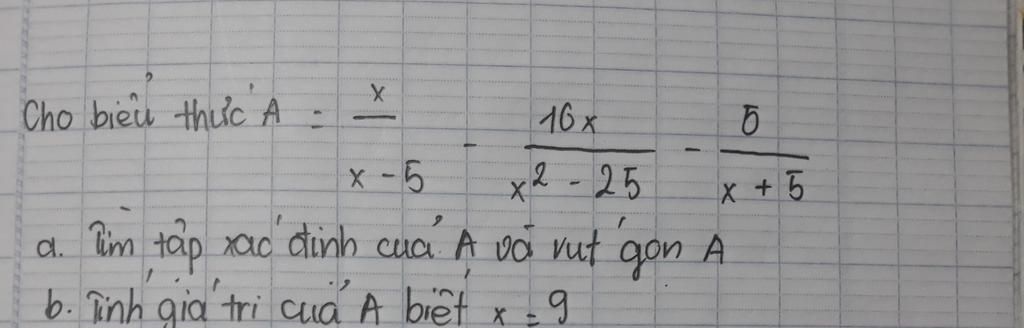 Cho biểu thức A = x / x - 5 - 10x / x² - 25 - 5 / x + 5
a. Tìm tập xác định của A và rút gọn A
b. Tính giá trị của A biết x = 9